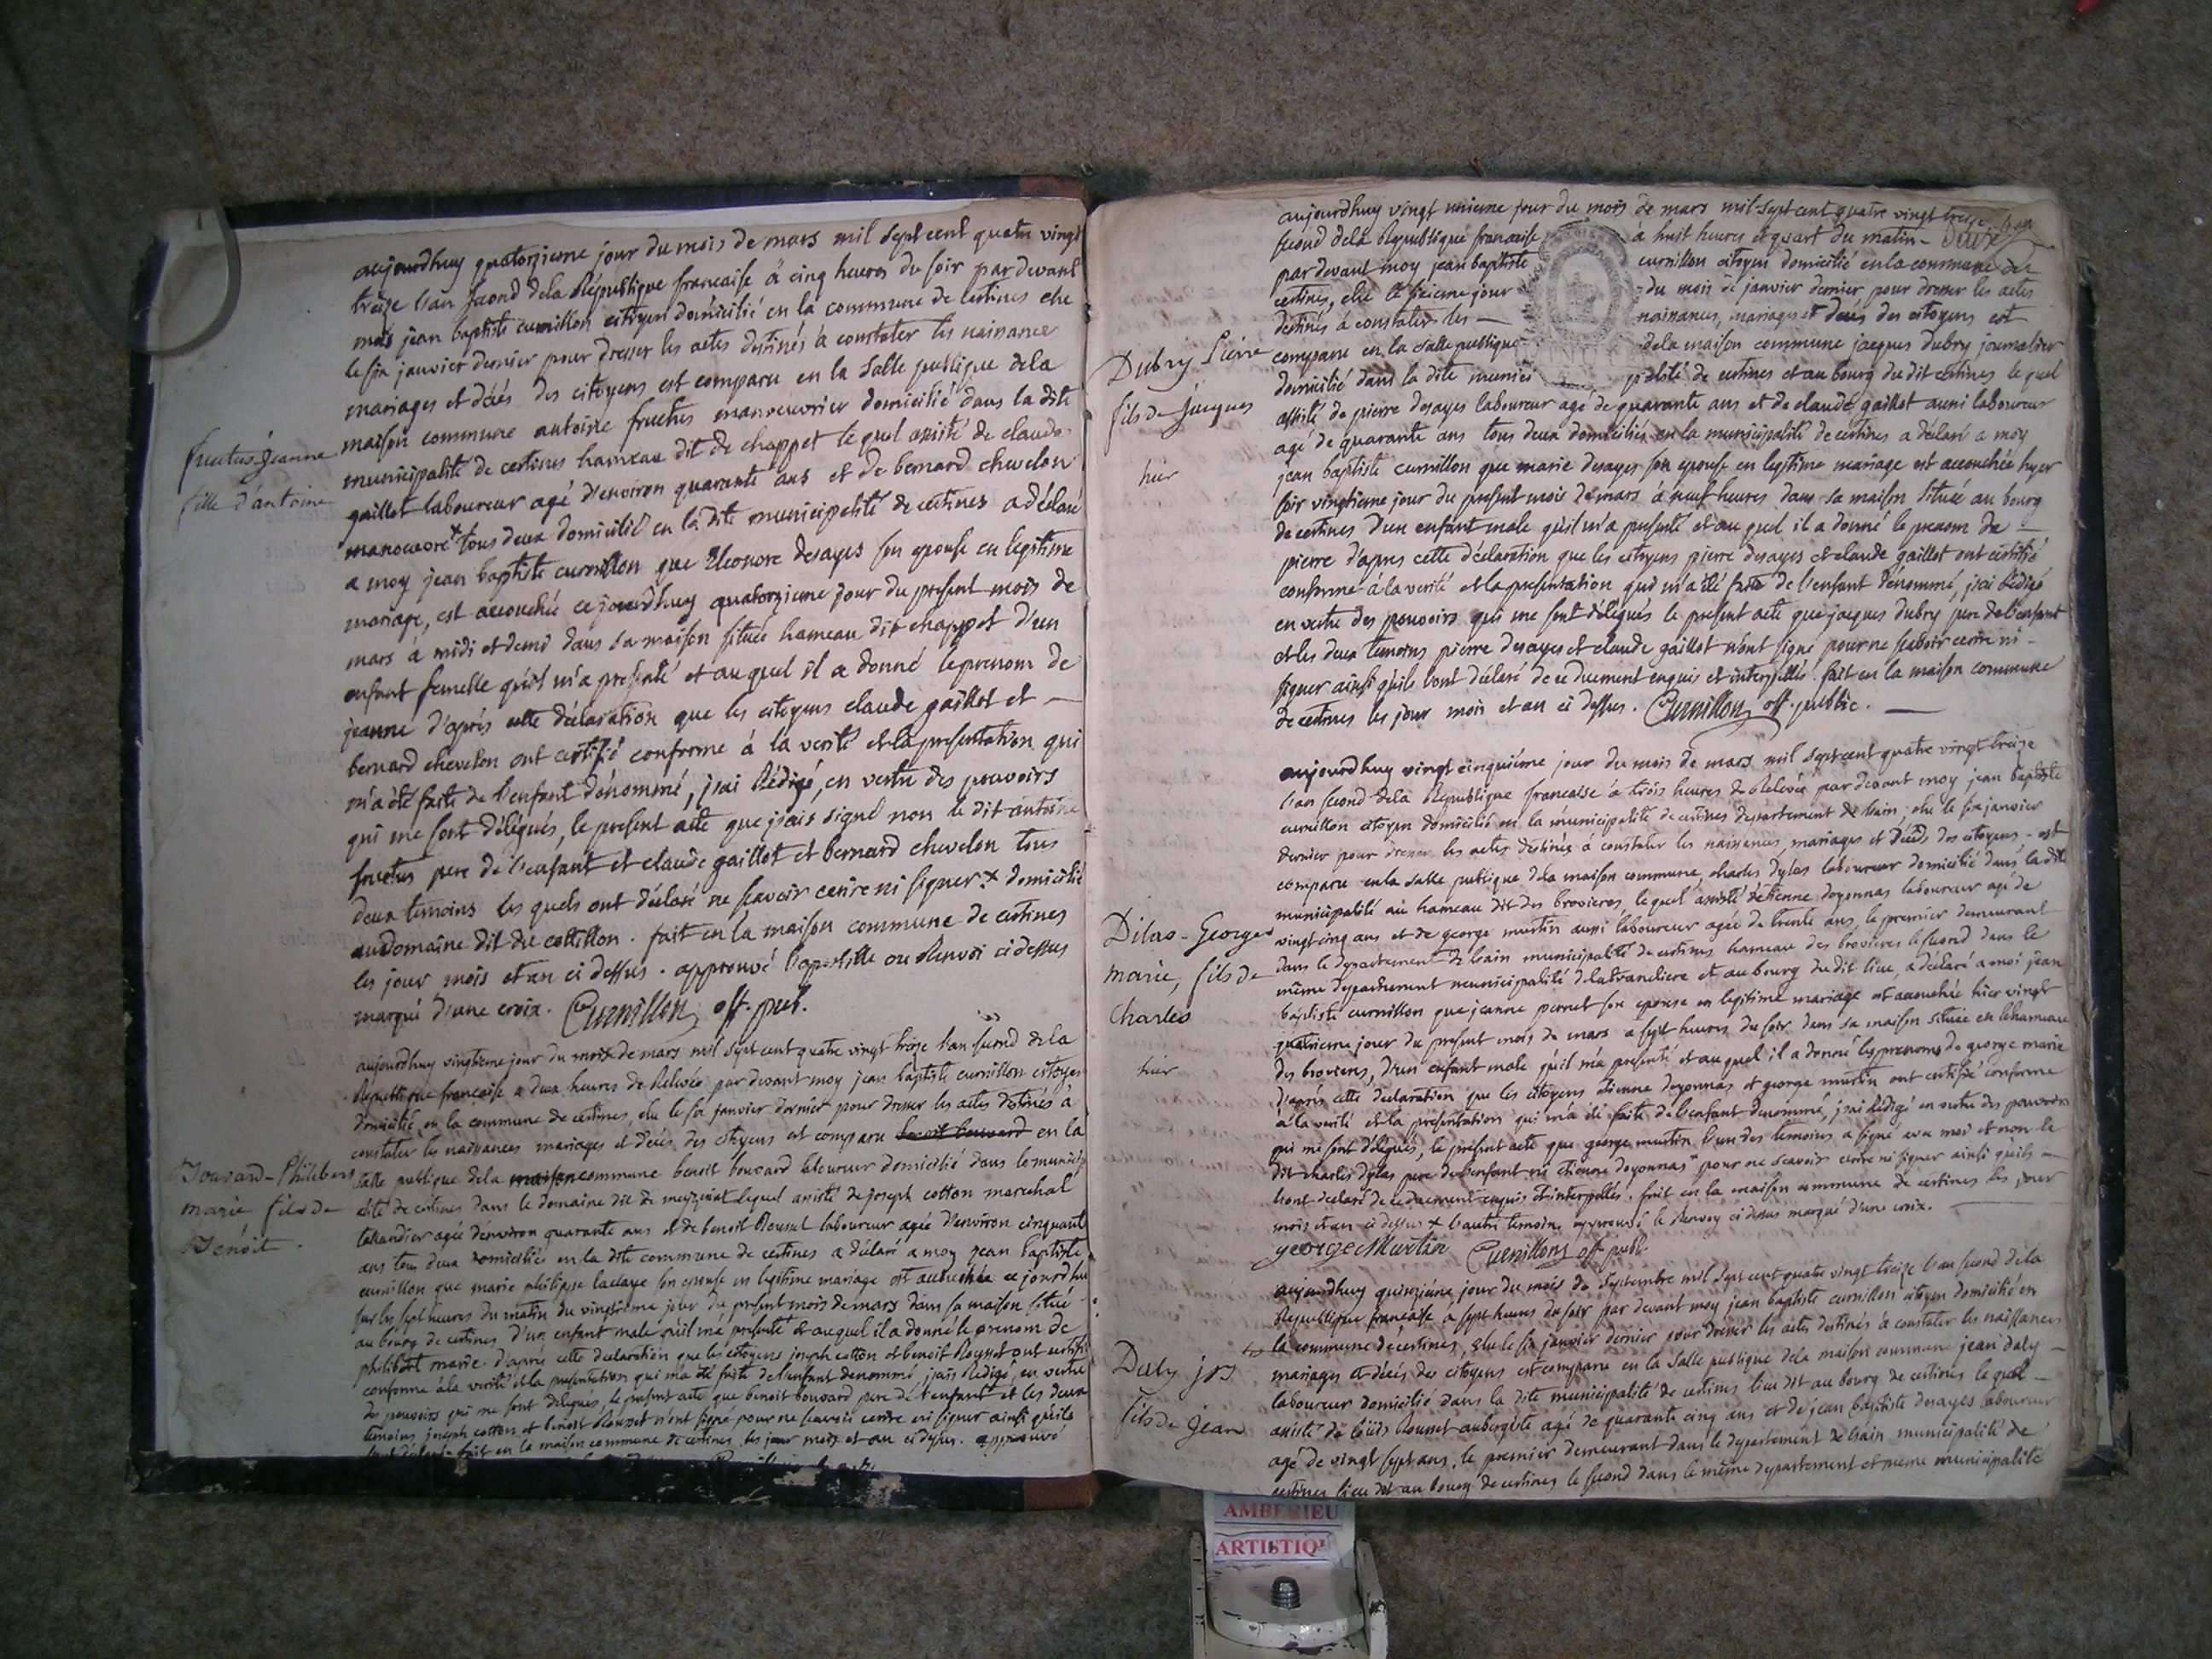 aujourdhuy quatorzieme jour du mois de mars mil sept cent quatre vingt
treize l'an second dela République francaise à cinq heures du soir par devant
moi jean baptiste curnillon citoyen domicilié en la commune de certines elu
le six janvier dernier pour dresser les actes destinés à constater les naissances
mariages et décés des citoyens est comparu en la salle publique dela
maison commune antoine fructus manoeuvrier domicilié dans la dite
municipalité de certines hameau dit de chappet le quel assisté de claude
gaillot laboureur agé d'environ quarante ans et de bernard chevelon
tous deux domicilié en la dite municipalité de certines a déclaré
a moy jean baptiste curnillon que Eleonore desayes son epouse en legitime
mariage, est accouchée ce jourdhuy quatorzieme jour du present mois de
mars à midi et demi dans sa maison située hameau dit chappet d'un
enfant femelle qu'il m'a presenté et au quel il a donné le prenom de
jeanne d'après cette déclaration que les citoyens claude gaillot et
bernard chevelon ont certifié conforme à la verité et la presentation qui
m'a été faite de l'enfant dénommé, j'ai Rédigé, en vertu des pouvoirs
qui me sont délégués, le present acte que j'ais signé non le dit antoine
fructus pere de l'enfant et claude gaillot et bernard chevelon tous
deux temoins les quels ont déclaré ne scavoir ecrire ni signer x domicilié
au domaine dit du cottillon. fait en la maison commune de certines
les jour mois et an ci dessus. approuvé l'apostille ou Renvoi ci dessus
marqué d'une croix. Curnillon off. pub.
fructus Jeanne
fille d'antoine
aujourdhuy vingtieme jour du mois de mars mil sept cent quatre vingt treize l'an second dela
Republique francaise a deux heures de Relevée par devant moy jean baptiste curnillon citoyen
domicilié en la commune de certines, elu le six janvier dernier pour dresser les actes destinés à
constater les naissances mariages et décés des citoyens est comparu benoit bouvard en la
salle publique dela maison commune benoit bouvard laboureur domicilié dans la municip
alité de certines dans le domaine dit de lequel assisté de joseph cotton marechal
taillandier agée d'environ quarante ans et de benoit Rousset laboureur agée d'environ cinquante
ans tous deux domiciliés en la dite commune de certines a déclaré a moy jean baptiste
curnillon que marie philippe son epouse en legitime mariage est accouchée ce jourdhui
sur les sept heures du matin du vingtieme jour du present mois de mars dans sa maison située
au bourg de certines d'un enfant male qu'il m'a presenté et auquel il a donné le prenom de
philibert marie. d'après cette déclaration que les citoyens joseph cotton et benoit Rousset ont certifié
conforme à la verité et la presentation qui m'a été faite de l'enfant denommé, j'ais Rédigé, en vertu
des pouvoirs qui me sont délégués, le present acte que benoit bouvard pere de l'enfant et les deux
temoins joseph cotton et benoit Rousset n'ont signé pour ne scavoir ecrire ni signer ainsi qu'ils
l'ont déclaré fait en la maison commune de certines les jour mois et an ci dessus. approuvé
Bouvard-Philibert
marie fils de
Benoit.
aujourdhuy vingt unieme jour du mois de mars mil-sept cent quatre vingt treize l'an
second dela Republique francaise à huit heures et quart du matin-
par devant moy jean baptiste curnillon citoyen domicilié en la commune de
certines, elu le sixieme jour du mois de janvier dernier pour dresser les actes
destinés à constater les naissances, mariages et décés des citoyens est
comparu en la salle publique dela maison commune jacques dubry journalier
domicilié dans la dite munici palité de certines et au bourg du dit certines le quel
assisté de pierre desayes laboureur agé de quarante ans et de claude gaillot aussi laboureur
agé de quarante ans tous deux domiciliés en la municipalité de certines a déclaré a moy
jean baptiste curnillon que marie desayes son epouse en legitime mariage est accouchée hyer
soir vingtieme jour du present mois de mars à neuf heures dans sa maison située au bourg
de certines d'un enfant male qu'il m'a presenté et au quel il a donné le prenom de
pierre d'apres cette déclaration que les citoyens pierre desayes et claude gaillot ont certifié
conforme à la verité et la presentation qui m'a été faite de l'enfant denommé, j'ai Rédigé
en vertu des pouvoirs qui me sont délégués le present acte que jacques dubry pere de l'enfant
et les deux temoins pierre desayes et claude gaillot n'ont signé pour ne scavoir ecrire ni
signer ainsi qu'ils l'ont déclaré de ce duement enquis et interpellés. fait en la maison commune
de certines les jour mois et an ci dessus. Curnillon off. public.
Dubry Pierre
fils de Jacques
hier
aujourdhuy vingt cinquiéme jour du mois de mars mil sept cent quatre vingt treize
l'an second dela Republique francaise à trois heures de Relevée par devant moy jean baptiste
curnillon citoyen domicilié en la municipalité de certines departement de l'ain, elu le six janvier
dernier pour dresser les actes destinés à constater les naissances, mariages et décés des citoyens - est
comparu en la salle publique dela maison commune, charles dylas laboureur domicilié dans la dite
municipalité au hameau dit des brovieres, le quel assisté d'etienne doyonnas laboureur agé de
vingt cinq ans et de george martin aussi laboureur agée de trente ans, le premier demeurant
dans le departement de l'ain municipalité de certines hameau des brovieres le second dans le
même departement municipalité delatranclière et au bourg du dit lieu, a déclaré a moi jean
baptiste curnillon que jeanne pernet son epouse en legitime mariage est accouchée hier vingt
quatrieme jour du present mois de mars a sept heures du soir dans sa maison située en le hameau
des brovieres, d'un enfant male qu'il m'a presenté et au quel il a donné les prenoms de george marie
d'après cette déclaration que les citoyens etienne doyonnas et george martin ont certifié conforme
à la verité et la presentation qui m'a été faite de l'enfant denommé, j'ai Rédigé en vertu des pouvoirs
qui me sont délégués, le present acte que george martin l'un des temoins a signé avec moi et non le
dit charles dylas pere de l'enfant ni etienne doyonnas x pour ne scavoir ecrire ni signer ainsi qu'ils
l'ont declaré de ce duement enquis et interpellés. fait en la maison commune de certines les jour
mois et an ci dessus x l'autre temoin, approuvé le Renvoy ci dessus marqué d'une croix.
george Martin Curnillon off publ.
Dilas-George
marie, fils de
Charles
hier
aujourdhuy quinziéme jour du mois de septembre mil sept cent quatre vingt treize l'an second dela
Republique francaise à sept heures du soir par devant moy jean baptiste curnillon citoyen domicilié en
la commune de certines, elu le six janvier dernier pour dresser les actes destinés à constater les naissances
mariages et décés des citoyens est comparu en la salle publique dela maison commune jean daly
laboureur domicilié dans la dite municipalité de certines lieu dit au bourg de certines le quel
assisté de louis Rousset aubergiste agé de quarante cinq ans et de jean baptiste desayes laboureur
agé de vingt sept ans, le premier demeurant dans le departement de l'ain municipalité de
certines lieu dit au bourg de certines le second dans le même departement et meme municipalité
Daly jos
fils de Jean
AMBERIEU
ARTISTIQ